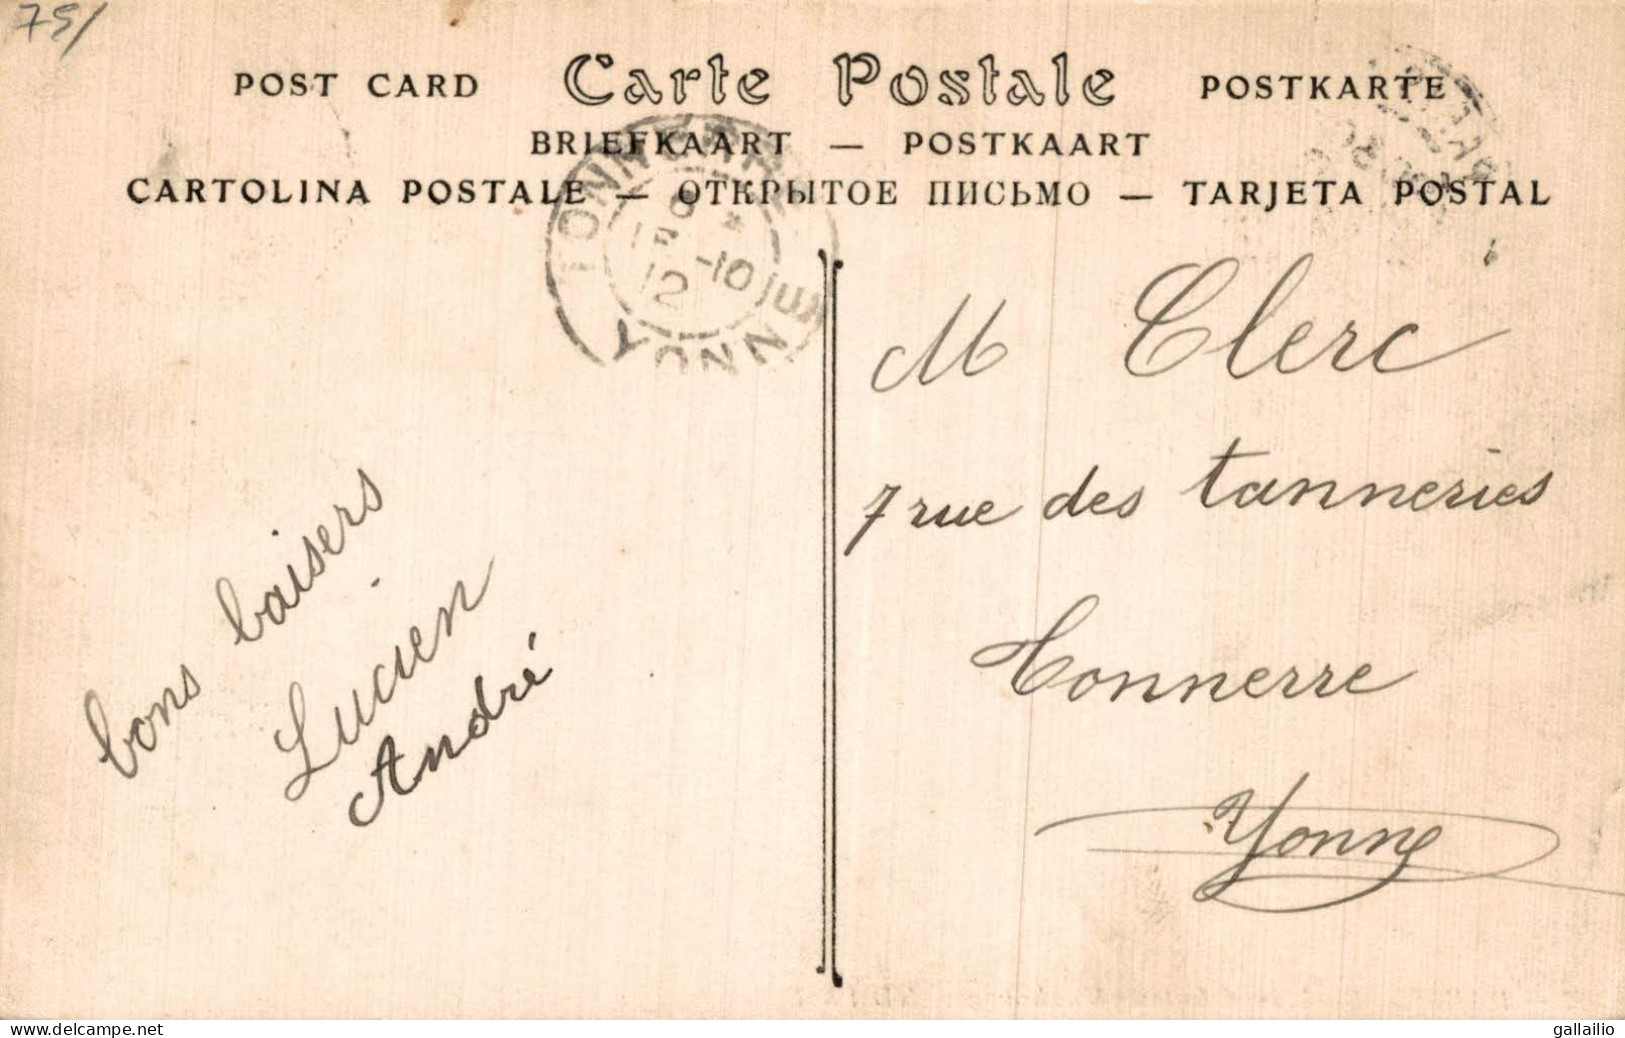 75/
POST CARD Carte Postale POSTKARTE
BRIEFKAART — POSTKAART
CARTOLINA POSTALE — ОТКРЫТОЕ ПИСЬМО — TARJETA POSTAL
TONNERRE
12 -10
YONNE
M Clerc
7 rue des tanneries
Tonnerre
Yonne
bons baisers
Lucien
André
www.delcampe.net
gallailio